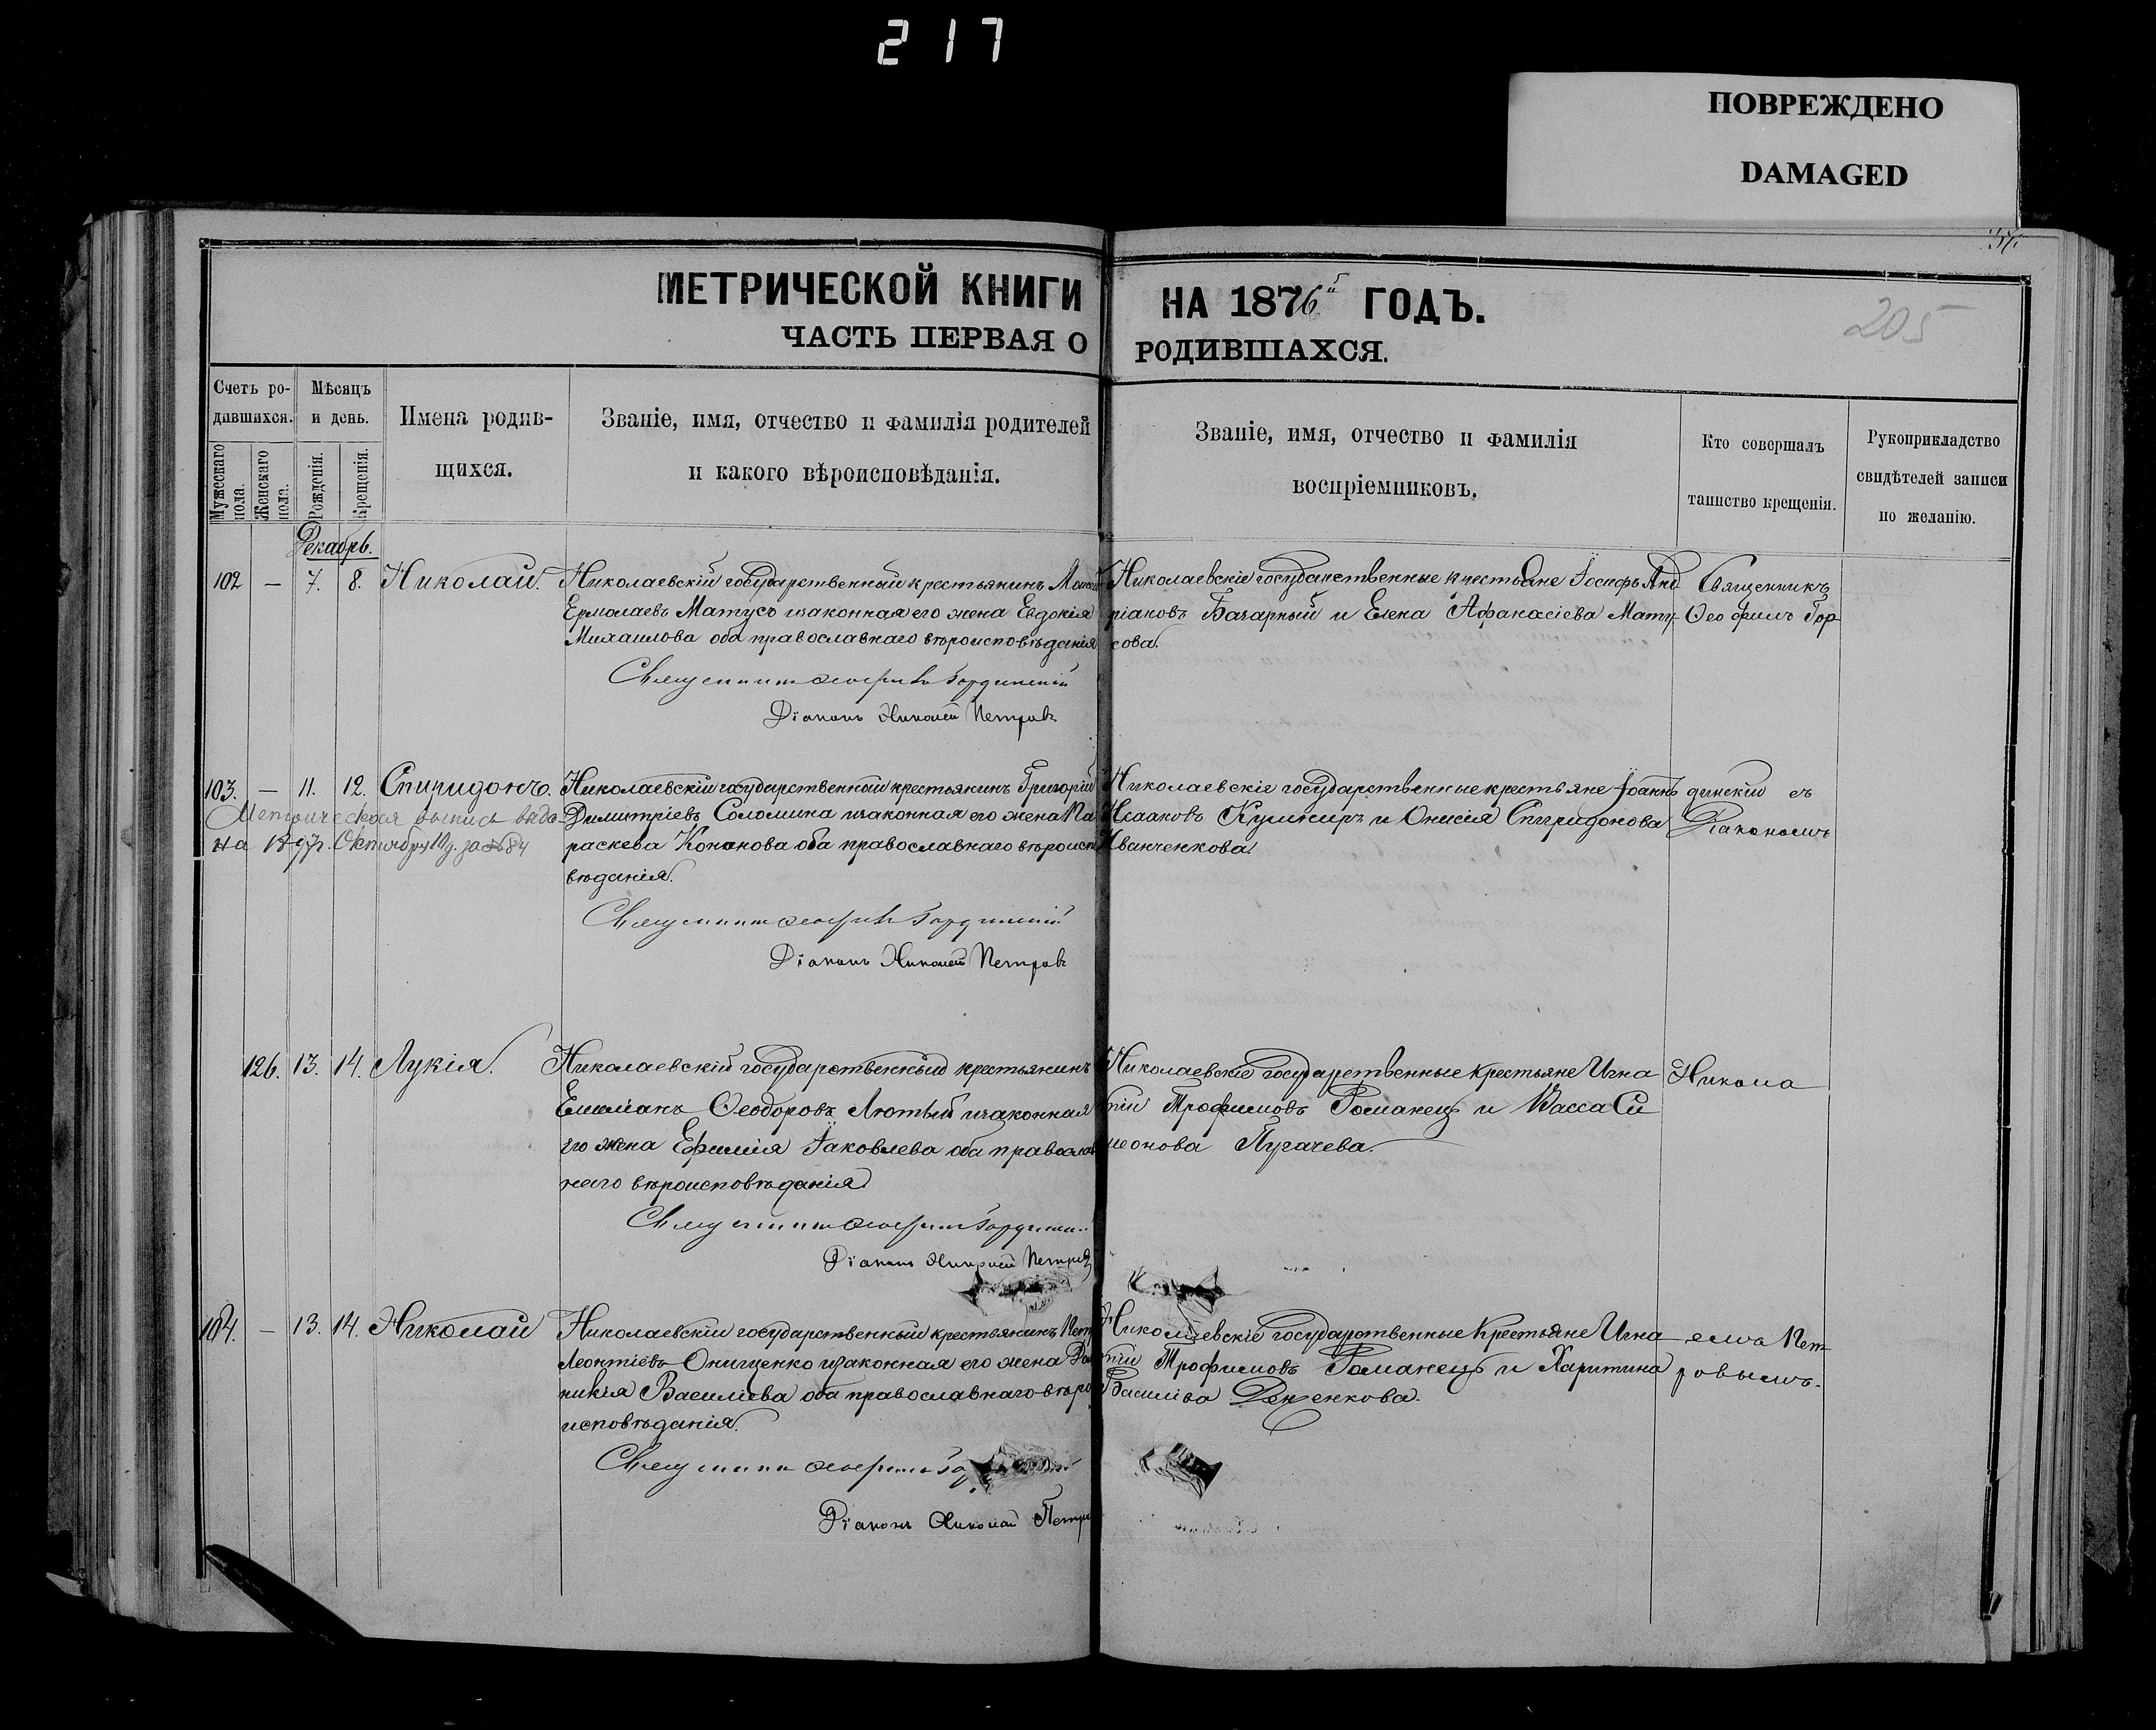 217
ПОВРЕЖДЕНО
DAMAGED
МЕТРИЧЕСКОЙ КНИГИ НА 1876й ГОДЪ.
205
ЧАСТЬ ПЕРВАЯ О РОДИВШАХСЯ.
Счетъ ро-
дившихся.
Мужескаго
пола.
Женскаго
пола.
Мѣсяцъ
и день.
Рожденія.
Крещенія.
Имена родив-
щихся.
Званіе, имя, отчество и фамилія родителей
и какого вѣроисповѣданія.
Званіе, имя, отчество и фамилія
воспріемниковъ.
Кто совершалъ
таинство крещенія.
Рукоприкладство
свидѣтелей записи
по желанію.
Декабрь.
102 — 7. 8. Николай.
Николаевскій государственный крестьянинъ
Ермолаевъ Матусъ изаконная его жена Евдокія
Михаилова оба православнаго вѣроисповѣданія
Священникъ Ѳеофилъ Гординскій
Діаконъ Николай Петровъ
Николаевскіе государственные крестьяне Іосифъ Анд
ріановъ Бачарный и Елена Афанасіева Мату-
сова.
Священникъ
Ѳеофилъ Гор-
103. — 11. 12. Спиридонъ.
Метрическая выпись выда-
на 1897г. Октября 10д. за №84
Николаевскій государственный крестьянинъ Григорій
Димитріевъ Соломина изаконная его жена Па
раскева Кононова оба православнаго вѣроиспо
вѣданія.
Священникъ Ѳеофилъ Гординскій
Діаконъ Николай Петровъ
Николаевскіе государственные крестьяне Іоаннъ
Исааковъ Кушниръ и Онисія Спиридонова
Иванченкова.
динскій съ
Діакономъ
126. 13. 14. Лукія.
Николаевскій государственный крестьянинъ
Емиліанъ Ѳеодоровъ Лютый изаконная
его жена Ефимія Іаковлева оба православ
наго вѣроисповѣданія
Священникъ Ѳеофилъ Гордински
Діаконъ Николай Петровъ
Николаевскіе государственные крестьяне Игна
тій Трофимовъ Романецъ и Васса Си
меонова Пугачева.
Никола
104. — 13. 14. Николай
Николаевскій государственный крестьянинъ Петръ
Леонтіевъ Онищенко изаконная его жена До
никія Василіева оба православнаго вѣро
исповѣданія.
Священникъ Ѳеофилъ
Діаконъ Николай Петро
Николаевскіе государственные крестьяне Игна
тій Трофимовъ Романецъ и Харитина
Василіва
емъ Пет-
ровымъ.